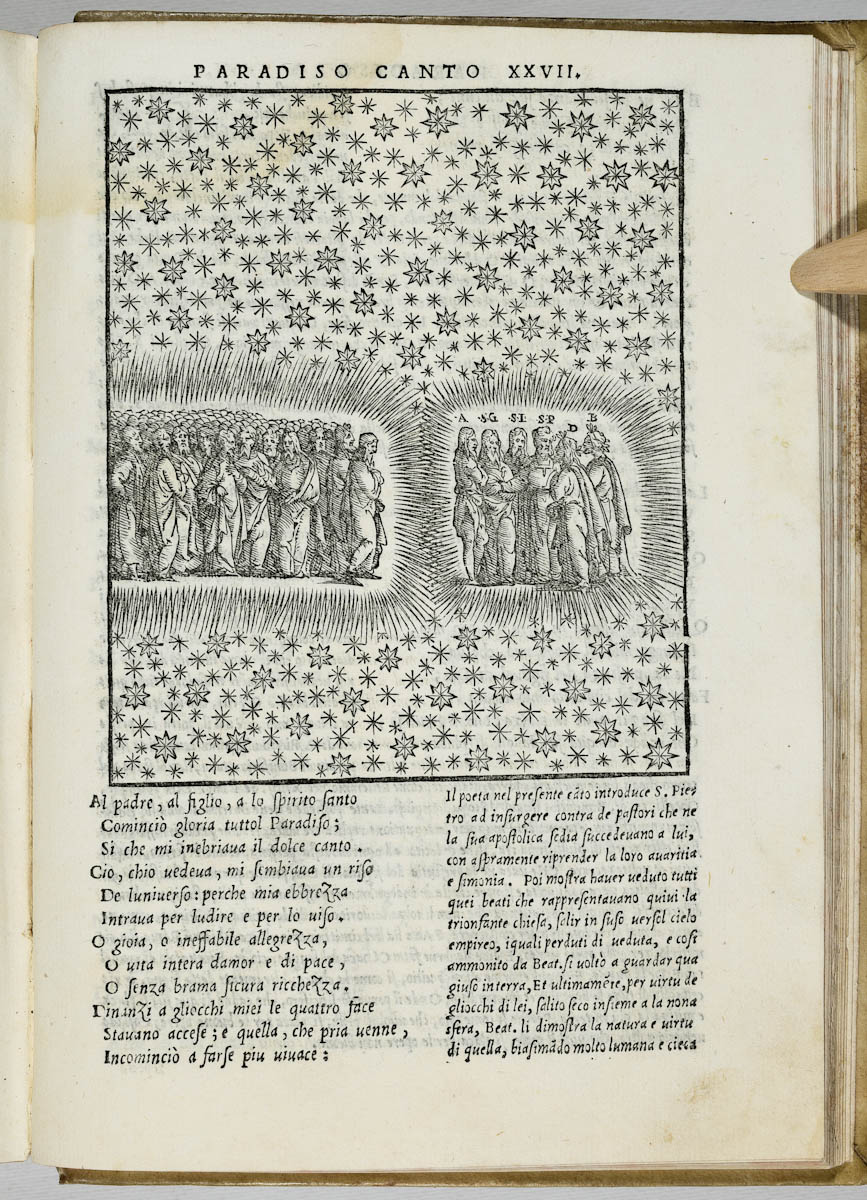 PARADISO CANTO XXVII.
A. .S.G. .S.I. S.P. D B
Al padre, al figlio, a lo ſpirito ſanto
Cominciò gloria tuttol Paradiſo;
Si che mi inebriaua il dolce canto.
Cio, chio uedeua, mi ſembiaua un riſo
De luniuerſo: perche mia ebbrezza
Intraua per ludire e per lo uiſo.
O gioia, o ineffabile allegrezza,
O uita intera damor e di pace,
O ſenza brama ſicura ricchezza.
Dinanzi a gliocchi miei le quattro face
Stauano acceſe; e quella, che pria uenne,
Incominciò a farſe piu uiuace:
Il poeta nel preſente cãto introduce S. Pie-
tro ad inſurgere contra de paſtori che ne
la ſua apoſtolica ſedia ſuccedeuano a lui,
con aſpramente riprender la loro auaritia
e ſimonia. Poi moſtra hauer ueduto tutti
quei beati che rappreſentauano quiui la
trionfante chieſa, ſalir in ſuſo uerſol cielo
empireo, iquali perduti di ueduta, e coſi
ammonito da Beat. ſi uoltò a guardar qua
giuſo in terra, Et ultimamẽte, per uirtu de
gliocchi di lei, ſalito ſeco inſieme a la nona
ſfera, Beat. li dimoſtra la natura e uirtu
di quella, biaſimãdo molto lumana e cieca